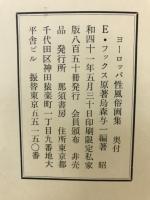 ヨーロッパ性風俗画集　奥付
E・フックス原著鳥森与一編著　昭
和四十一年五月三十日印刷限定私家
版八百五十冊発行　会員頒布　非売
品　発行所　那須書房　住所東京都
千代田区神田猿楽町一丁目九番地大
平舎ビル　振替東京五五一五〇番